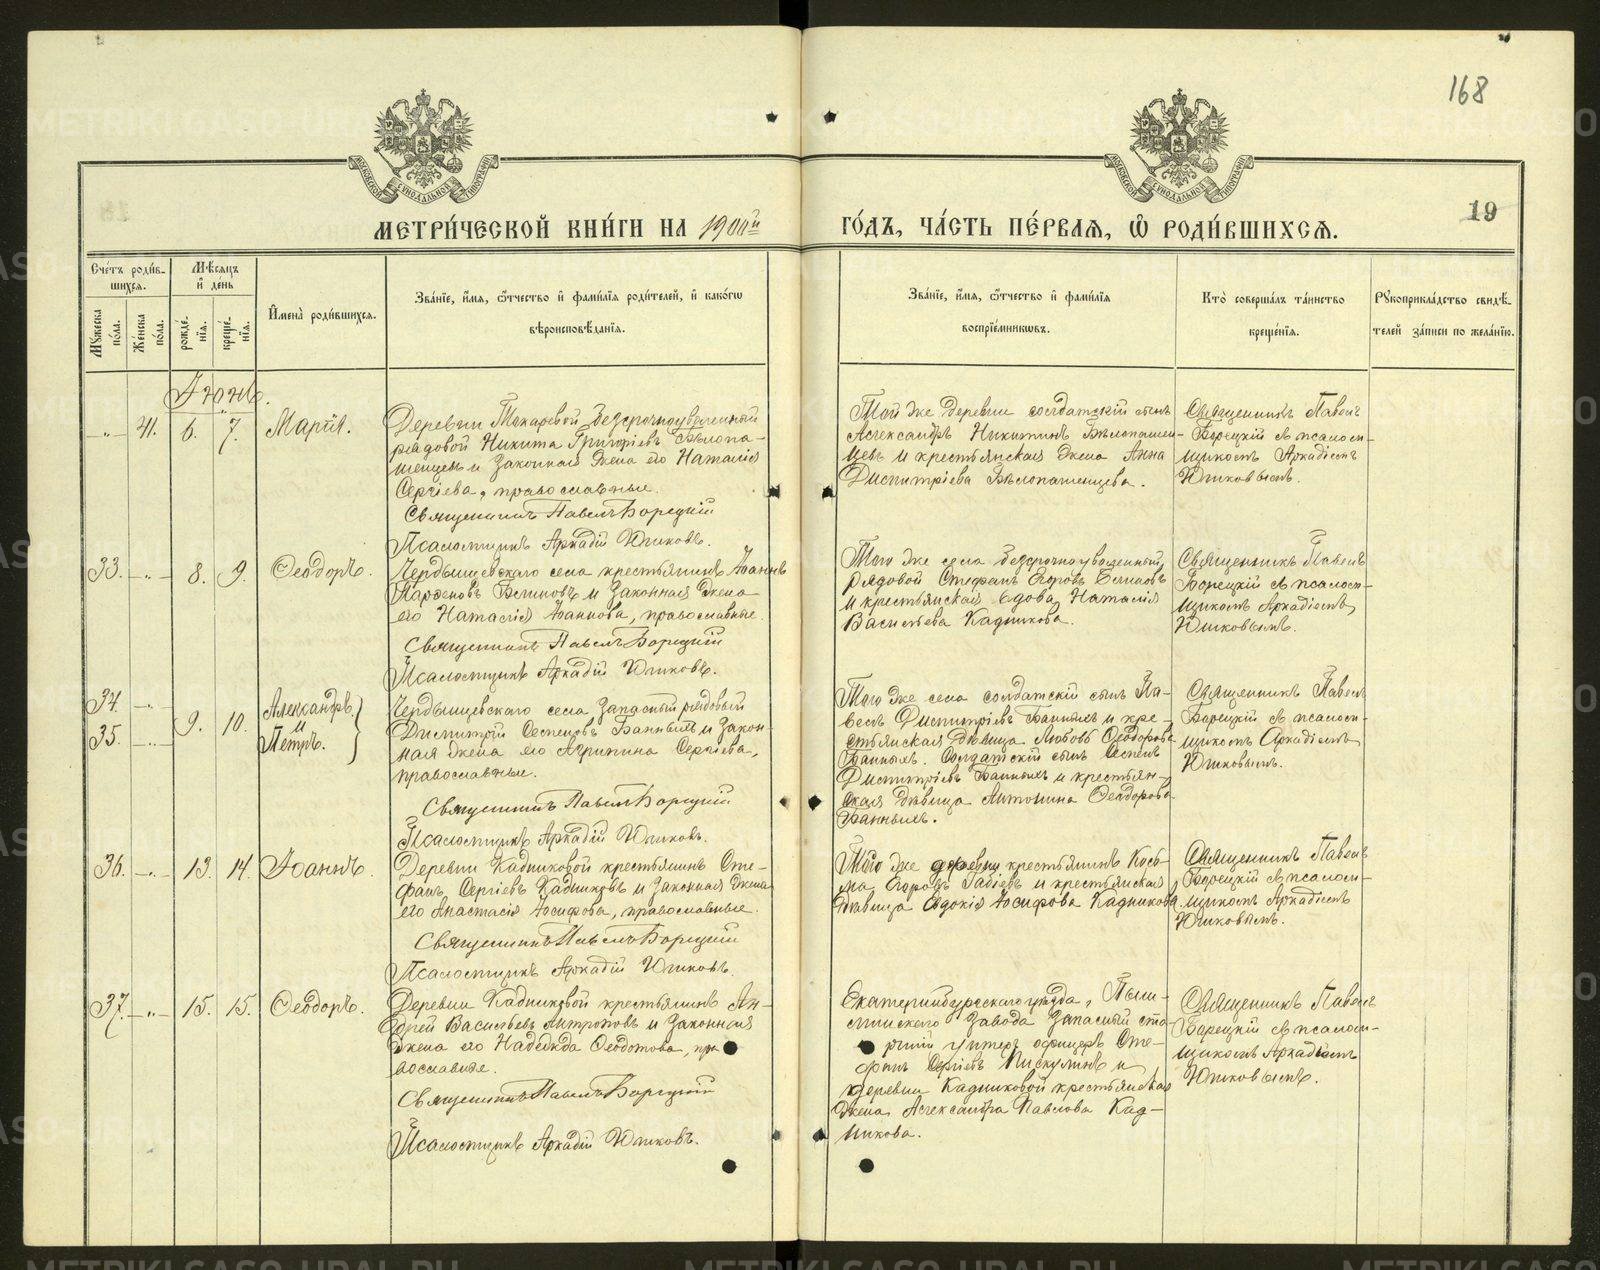 168
МОСКОВСКОЙ СѴНОДАЛЬНОЙ ТИПОГРАФІИ
МОСКОВСКОЙ СѴНОДАЛЬНОЙ ТИПОГРАФІИ
19
МЕТРИ́ЧЕСКОЙ КНИ́ГИ НА 1900й ГО́ДЪ, ЧА́СТЬ ПЕ́РВАЯ, Ѡ РОДИ́ВШИХСЯ.
Сче́тъ роди́в-
шихся.
Мѣ́сяцъ
и де́нь
Мꙋ́жеска по́ла.
Же́нска по́ла.
рожде́-
нїя.
креще́-
нїя.
И҆мена̀ роди́вшихся.
Зва́нїе, и҆́мя, ѻ҆́тчество и҆ фами́лїя роди́телей, и҆ како́гѡ
вѣроисповѣ́данїя.
Зва́нїе, и҆́мя, ѻ҆́тчество и҆ фами́лїя
воспрїе́мникѡвъ.
Кто̀ соверша́лъ та́инство
креще́нїя.
Рꙋкоприкла́дство свидѣ́-
телей за́писи по жела́нїю.
Іюнь.
-„- 41. 6. 7. Марія.
Деревни Токаревой безсрочноуволенный
рядовой Никита Григоріевъ Бѣлопа-
шенцевъ и законная жена его Наталія
Сергіева, православные.
Священникъ Павелъ Борецкій
Псаломщикъ Аркадій Юшковъ.
Той же деревни солдатскій сынъ
Александръ Никитинъ Бѣлопашен-
цевъ и крестьянская жена Анна
Димитріева Бѣлопашенцева.
Священникъ Павелъ
Борецкій съ псалом-
щикомъ Аркадіемъ
Юшковымъ.
33. -„- 8. 9. Ѳеодоръ.
Чердынцевскаго села крестьянинъ Іоаннъ
Парѳеновъ Блиновъ и законная жена
его Наталія Іоаннова, православные.
Священникъ Павелъ Борецкій
Псаломщикъ Аркадій Юшковъ.
Того же села безсрочноуволенный
рядовой Стефанъ Егоровъ Блиновъ
и крестьянская вдова Наталія
Васильева Кадникова.
Священникъ Павелъ
Борецкій съ псалом-
щикомъ Аркадіемъ
Юшковымъ.
34. -„-
35. -„- 9. 10. Александръ
и
Петръ.
Чердынцевскаго села запасный рядовой
Димитрій Семеновъ Банныхъ и закон-
ная жена его Агрипина Сергіева,
православные.
Священникъ Павелъ Борецкій
Псаломщикъ Аркадій Юшковъ.
Того же села солдатскій сынъ Па-
велъ Димитріевъ Банныхъ и кре-
стьянская дѣвица Любовь Ѳеодорова
Банныхъ. Солдатскій сынъ Семенъ
Димитріевъ Банныхъ и крестьян-
ская дѣвица Антонина Ѳеодорова
Банныхъ.
Священникъ Павелъ
Борецкій съ псалом-
щикомъ Аркадіемъ
Юшковымъ.
36. -„- 13. 14. Іоаннъ.
Деревни Кадниковой крестьянинъ Сте-
фанъ Сергіевъ Кадниковъ и законная жена
его Анастасія Іосифова, православные.
Священникъ Павелъ Борецкій
Псаломщикъ Аркадій Юшковъ.
Той же деревни крестьянинъ Кось-
ма Егоровъ и крестьянская
дѣвица Евдокія Іосифова Кадникова.
Священникъ Павелъ
Борецкій съ псалом-
щикомъ Аркадіемъ
Юшковымъ.
37. -„- 15. 15. Ѳеодоръ.
Деревни Кадниковой крестьянинъ Ан-
дрей Васильевъ Антроповъ и законная
жена его Надежда Ѳеодотова, пра
вославные.
Священникъ Павелъ Борецкій
Псаломщикъ Аркадій Юшковъ.
Екатеринбургскаго уѣзда, Пыш-
минскаго завода запасный ста-
ршій унтеръ офицеръ Сте-
фанъ Сергіевъ Пискулинъ и
деревни Кадниковой крестьянская
жена Александра Павлова Кад-
никова.
Священникъ Павелъ
Борецкій съ псалом-
щикомъ Аркадіемъ
Юшковымъ.